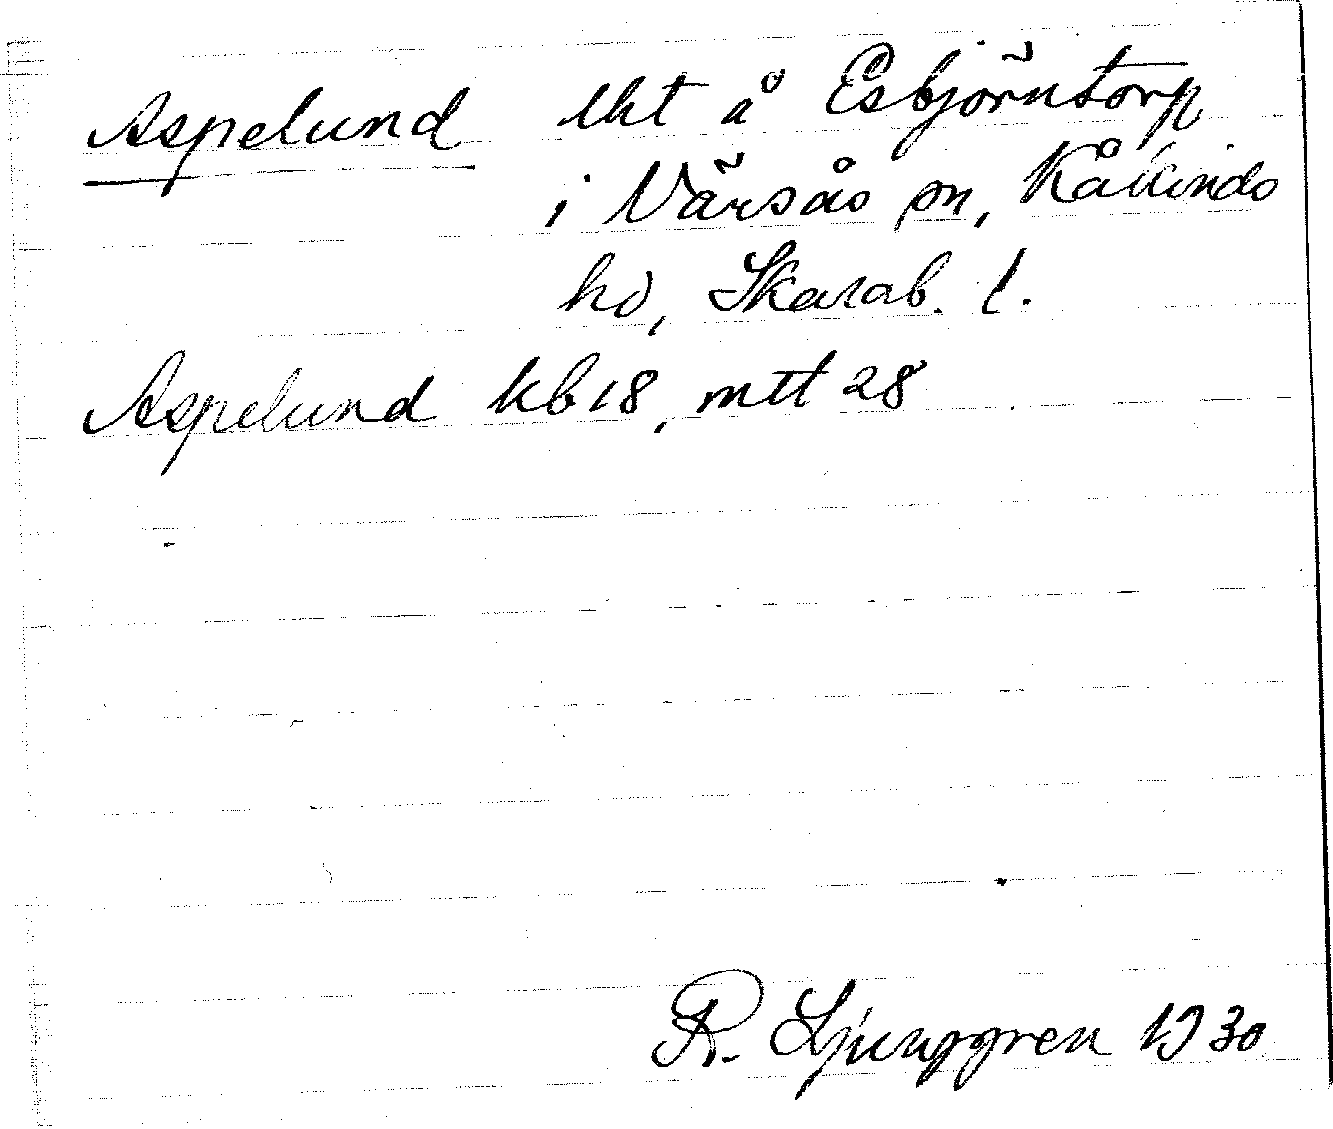 Aspelund lht å Esbjörntorp
i Värsås sn, Kåkinds
hd, Skarab. l.
Aspelund kb 18, mtt 28
R. Ljunggren 1930